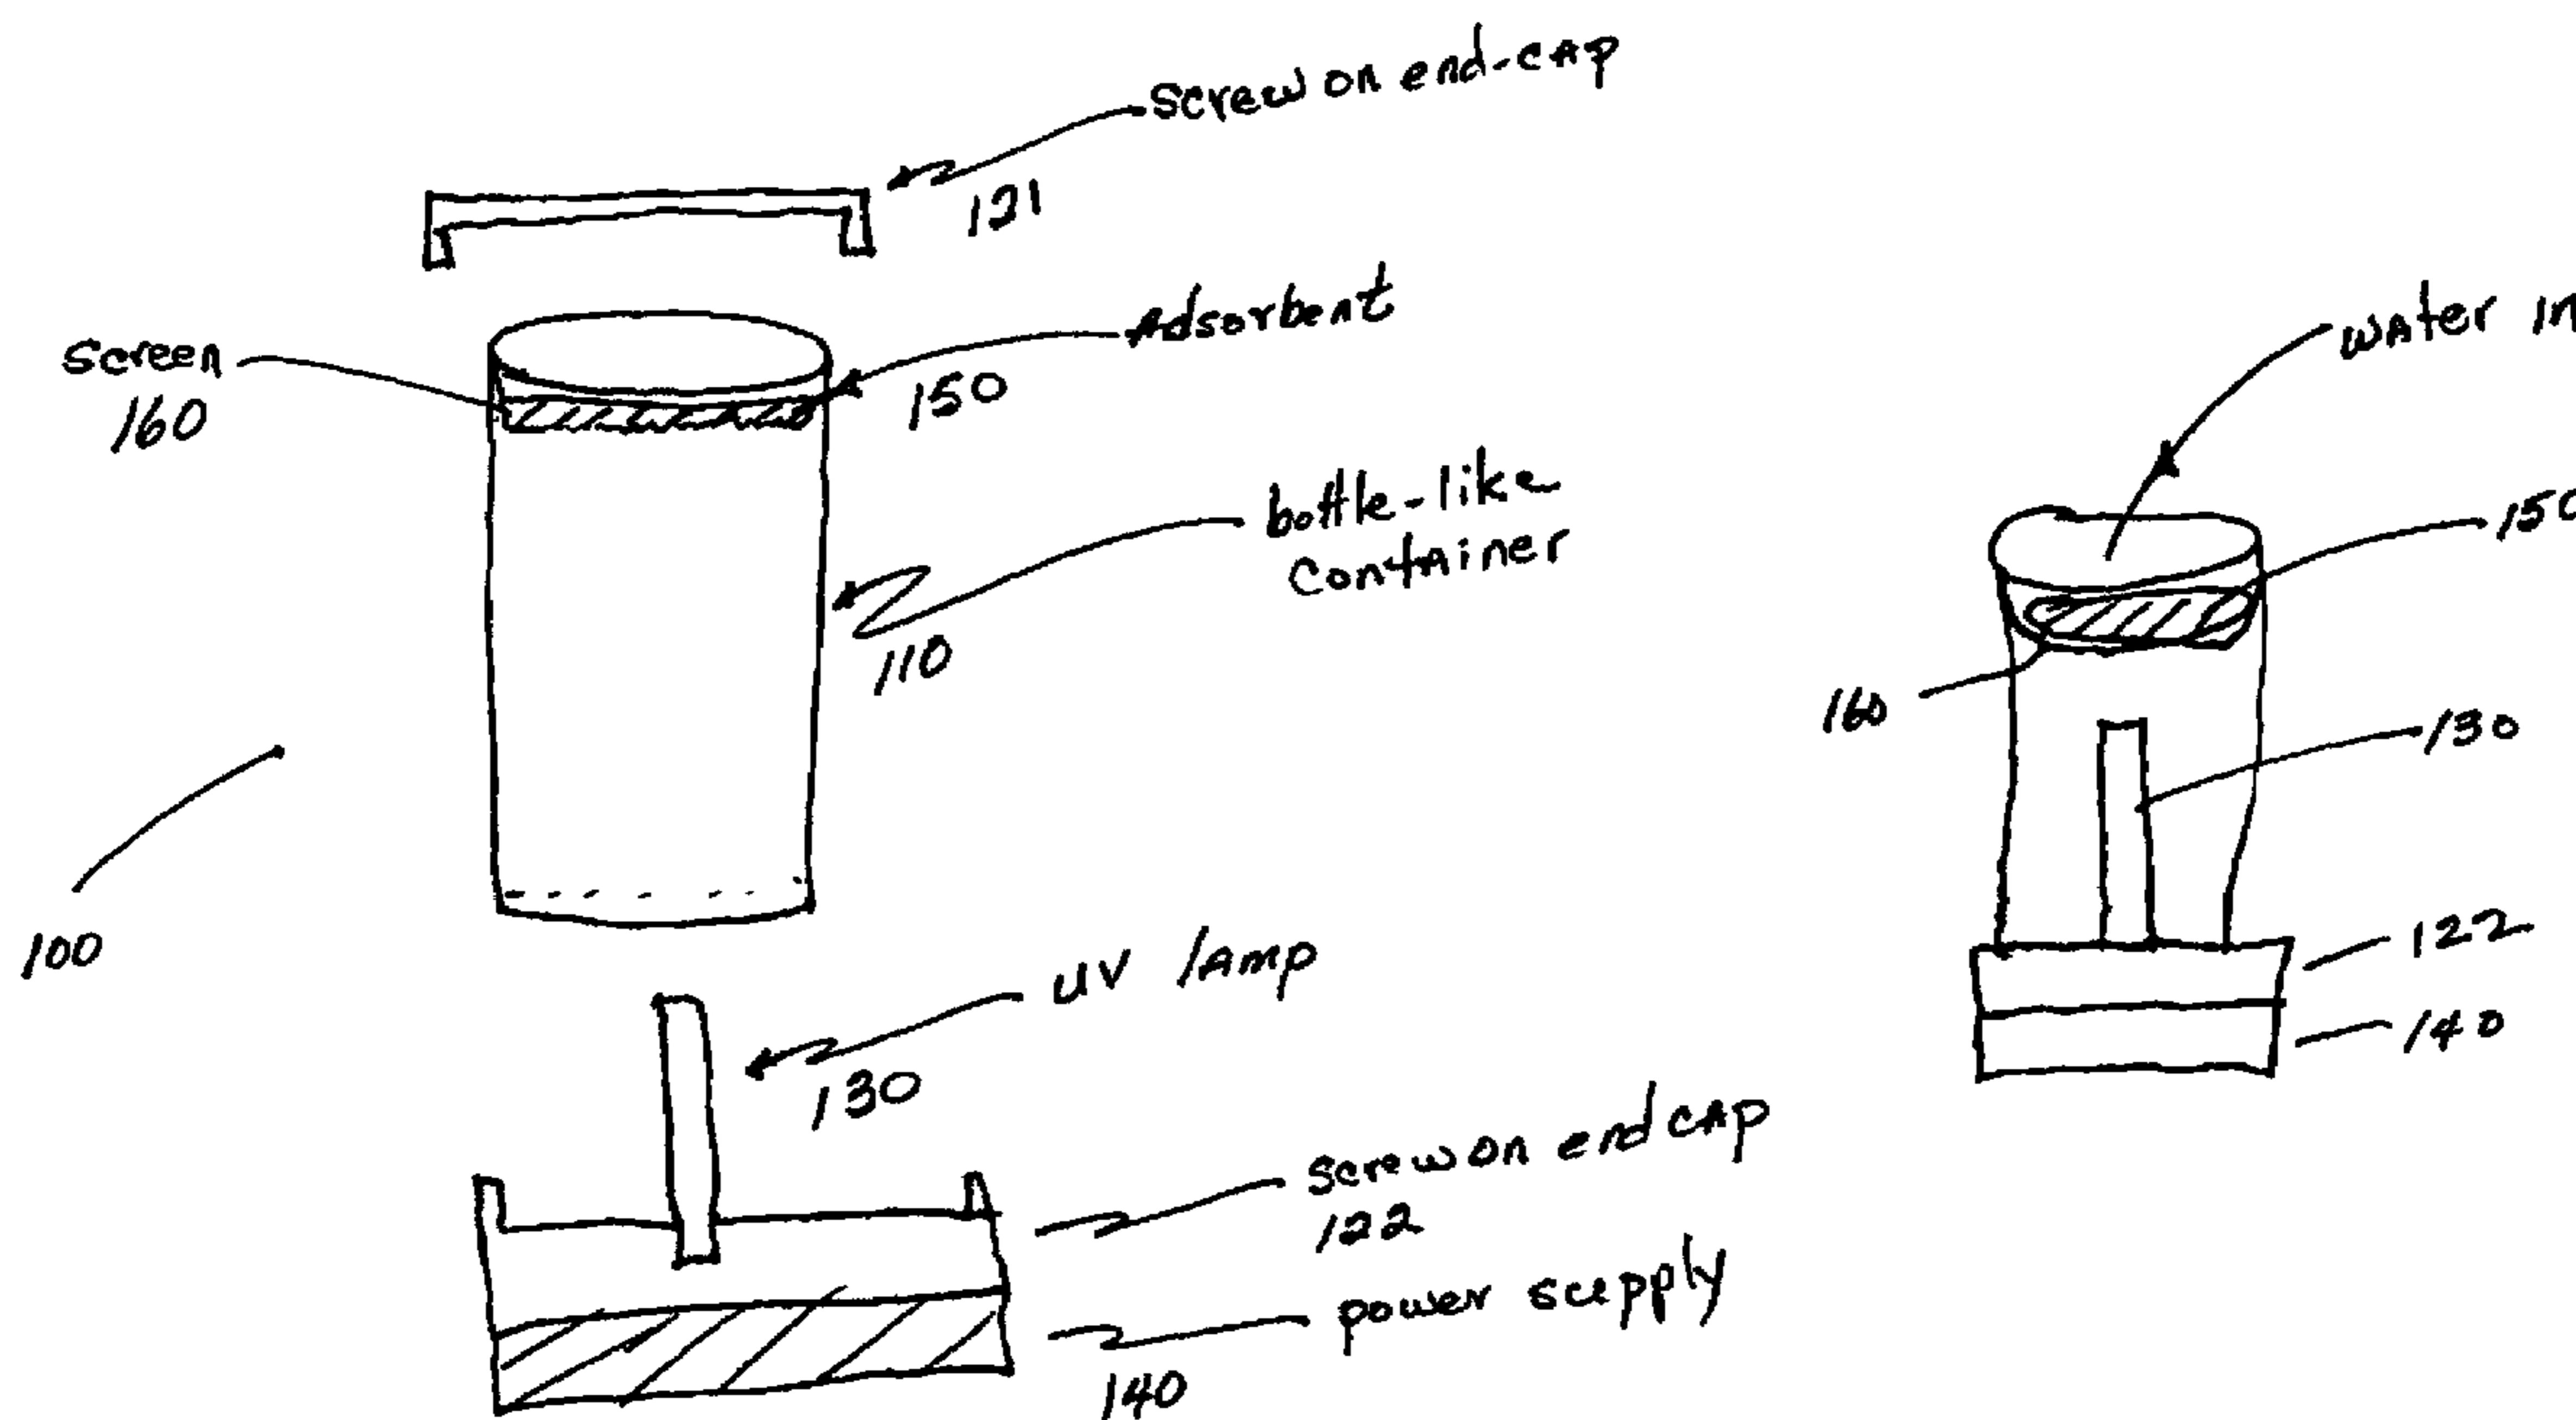 screw on end-cap
121
Screen
160
Adsorbent
150
bottle-like
container
110
100
UV lamp
130
screw on end cap
122
power supply
140
water in
150
160
130
122
140